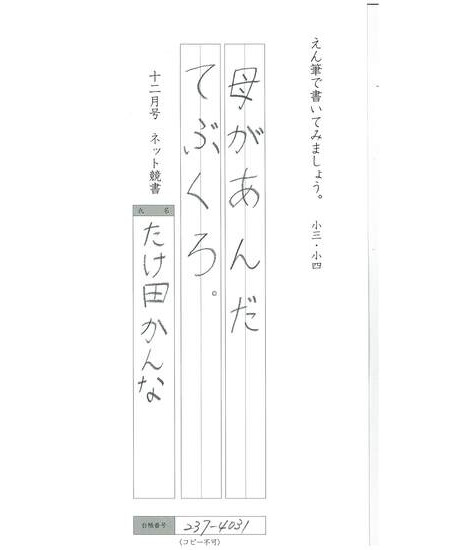 えん筆で書いてみましょう。 小三・小四
母があんだ
てぶくろ。
十二月号 ネット競書
氏名
たけ田かんな
台帳番号 237-4031
(コピー不可)